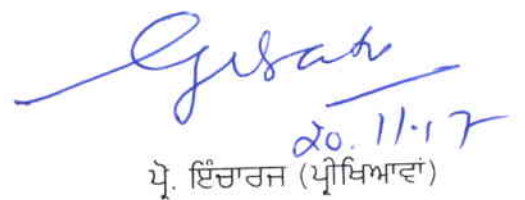 20.11.17
ਪ੍ਰੋ. ਇੰਚਾਰਜ (ਪ੍ਰੀਖਿਆਵਾਂ)